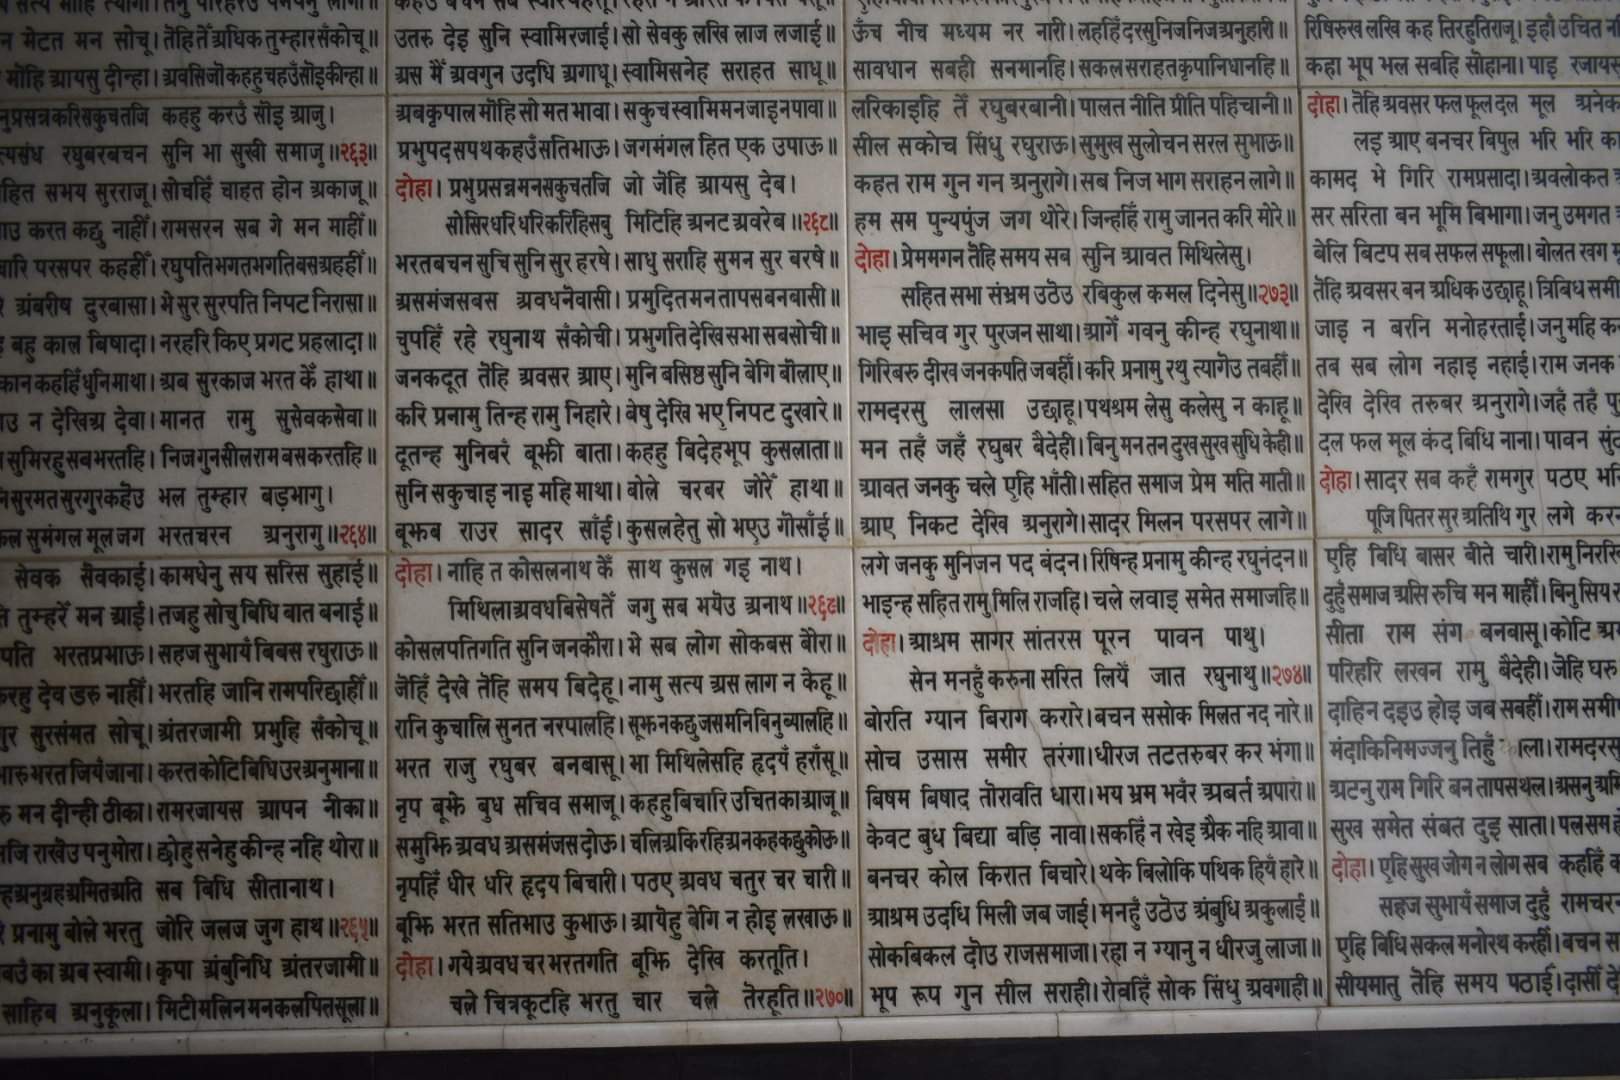 मेटत मन सोचू। तेहि तेँ अधिक तुम्हार सँकोचू॥
मोहि आयसु दीन्हा। अवसि जो कहहु चहउँ सोइ कीन्हा॥
कहहु करउँ सोइ आजु।
रघुबरबचन सुनि भा सुखी समाजु॥२६३॥
सहित सभय सुरराजू। सोचहिँ चाहत होन अकाजू॥
करत कछु नाहीँ। रामसरन सब गे मन माहीँ॥
परसपर कहहीँ। रघुपति भगत भगति बस अहहीँ॥
अंबरीष दुरबासा। भे सुर सुरपति निपट निरासा॥
बहु काल बिषादा। नरहरि किए प्रगट प्रहलादा॥
कान कहहिँ धुनि माथा। अब सुरकाज भरत केँ हाथा॥
न देखिअ देवा। मानत रामु सुसेवक सेवा॥
सुमिरहु सब भरतहि। निज गुन सील राम बस करतहि॥
सुरमत सुरगुर कहेउ भल तुम्हार बड़ भागु।
सुमंगल मूल जग भरतचरन अनुरागु॥२६४॥
सेवक सेवकाई। कामधेनु सय सरिस सुहाई॥
तुम्हरेँ मन आई। तजहु सोचु बिधि बात बनाई॥
भरतप्रभाऊ। सहज सुभायँ बिबस रघुराऊ॥
देव डरु नाहीँ। भरतहि जानि राम परिछाहीँ॥
सुरसंमत सोचू। अंतरजामी प्रभुहि सँकोचू॥
भरत जियँ जाना। करत कोटि बिधि उर अनुमाना॥
मन दीन्ही ठीका। राम रजायस आपन नीका॥
राखेउ पनु मोरा। छोहु सनेहु कीन्ह नहि थोरा॥
अनुग्रह अमित अति सब बिधि सीतानाथ।
प्रनामु बोले भरतु जोरि जलज जुग हाथ॥२६५॥
का अब स्वामी। कृपा अंबुनिधि अंतरजामी॥
साहिब अनुकूला। मिटी मलिन मन कलपित सूला॥
उतरु देइ सुनि स्वामि रजाई। सो सेवकु लखि लाज लजाई॥
अस मैँ अवगुन उदधि अगाधू। स्वामि सनेह सराहत साधू॥
अब कृपाल मोहि सो मत भावा। सकुच स्वामि मन जाइ न पावा॥
प्रभु पद सपथ कहउँ सति भाऊ। जग मंगल हित एक उपाऊ॥
दोहा। प्रभु प्रसन्न मन सकुच तजि जो जेहि आयसु देब।
सो सिर धरि धरि करिहि सबु मिटिहि अनट अवरेब॥२६८॥
भरत बचन सुचि सुनि सुर हरषे। साधु सराहि सुमन सुर बरषे॥
असमंजस बस अवध नेवासी। प्रमुदित मन तापस बनबासी॥
चुपहिँ रहे रघुनाथ सँकोची। प्रभु गति देखि सभा सब सोची॥
जनकदूत तेहि अवसर आए। मुनि बसिष्ठ सुनि बेगि बोलाए॥
करि प्रनामु तिन्ह रामु निहारे। बेषु देखि भए निपट दुखारे॥
दूतन्ह मुनिबरँ बूझी बाता। कहहु बिदेह भूप कुसलाता॥
सुनि सकुचाइ नाइ महि माथा। बोले चरबर जोरेँ हाथा॥
बूझब राउर सादर साँईँ। कुसल हेतु सो भएउ गोसाँईँ॥
दोहा। नाहि त कोसलनाथ केँ साथ कुसल गइ नाथ।
मिथिला अवध बिसेष तेँ जगु सब भयेउ अनाथ॥२६९॥
कोसलपति गति सुनि जनकौरा। भे सब लोग सोकबस बौरा॥
जेहिँ देखे तेहि समय बिदेहू। नामु सत्य अस लाग न केहू॥
रानि कुचालि सुनत नरपालहि। सूझ न कछु जस मनि बिनु ब्यालहि॥
भरत राजु रघुबर बनबासू। भा मिथिलेसहि हृदयँ हराँसू॥
नृप बूझे बुध सचिव समाजू। कहहु बिचारि उचित का आजू॥
समुझि अवध असमंजस दोऊ। चलिअ कि रहिअ न कह कछु कोऊ॥
नृपहिँ धीर धरि हृदय बिचारी। पठए अवध चतुर चर चारी॥
बूझि भरत सतिभाउ कुभाऊ। आयेहु बेगि न होइ लखाऊ॥
दोहा। गये अवध चर भरत गति बूझि देखि करतूति।
चले चित्रकूटहि भरतु चार चले तेरहूति॥२७०॥
ऊँच नीच मध्यम नर नारी। लहहिँ दरसु निज निज अनुहारी॥
सावधान सबही सनमानहिँ। सकल सराहत कृपानिधानहिँ॥
लरिकाइहि तेँ रघुबर बानी। पालत नीति प्रीति पहिचानी॥
सील सकोच सिंधु रघुराऊ। सुमुख सुलोचन सरल सुभाऊ॥
कहत राम गुन गन अनुरागे। सब निज भाग सराहन लागे॥
हम सम पुन्यपुंज जग थोरे। जिन्हहिँ रामु जानत करि मोरे॥
दोहा। प्रेम मगन तेहि समय सब सुनि आवत मिथिलेसु।
सहित सभा संभ्रम उठेउ रबिकुल कमल दिनेसु॥२७३॥
भाइ सचिव गुर पुरजन साथा। आगेँ गवनु कीन्ह रघुनाथा॥
गिरिबरु दीख जनकपति जबहीँ। करि प्रनामु रथु त्यागेउ तबहीँ॥
राम दरसु लालसा उछाहू। पथ श्रम लेसु कलेसु न काहू॥
मन तहँ जहँ रघुबर बैदेही। बिनु मन तन दुख सुख सुधि केही॥
आवत जनकु चले एहि भाँती। सहित समाज प्रेम मति माती॥
आए निकट देखि अनुरागे। सादर मिलन परसपर लागे॥
लगे जनकु मुनिजन पद बंदन। रिषिन्ह प्रनामु कीन्ह रघुनंदन॥
भाइन्ह सहित रामु मिलि राजहि। चले लवाइ समेत समाजहि॥
दोहा। आश्रम सागर सांतरस पूरन पावन पाथु।
सेन मनहुँ करुना सरित लियेँ जात रघुनाथु॥२७४॥
बोरति ग्यान बिराग करारे। बचन ससोक मिलत नद नारे॥
सोच उसास समीर तरंगा। धीरज तट तरुबर कर भंगा॥
बिषम बिषाद तोरावति धारा। भय भ्रम भवँर अबर्त अपारा॥
केवट बुध बिद्या बड़ि नावा। सकहिँ न खेइ अैक नहि आवा॥
बनचर कोल किरात बिचारे। थके बिलोकि पथिक हियँ हारे॥
आश्रम उदधि मिली जब जाई। मनहुँ उठेउ अंबुधि अकुलाई॥
सोक बिकल दोउ राज समाजा। रहा न ग्यानु न धीरजु लाजा॥
भूप रूप गुन सील सराही। रोवहिँ सोक सिंधु अवगाही॥
रिषिरुख लखि कह तिरहुतिराजू। इहाँ उचित
कहा भूप भल सबहि सोहाना। पाइ रजायस
दोहा। तेहि अवसर फल फूल दल मूल
लइ आए बनचर बिपुल भरि भरि
कामद भे गिरि रामप्रसादा। अवलोकत
सर सरिता बन भूमि बिभागा। जनु उमगत
बेलि बिटप सब सफल सफूला। बोलत खग
तेहि अवसर बन अधिक उछाहू। त्रिबिध
जाइ न बरनि मनोहरताई। जनु महि
तब सब लोग नहाइ नहाई। राम जनक
देखि देखि तरुबर अनुरागे। जहँ तहँ
दल फल मूल कंद बिधि नाना। पावन
दोहा। सादर सब कहँ रामगुर पठए
पूजि पितर सुर अतिथि गुर लगे
एहि बिधि बासर बीते चारी। रामु
दुहुँ समाज असि रुचि मन माहीँ। बिनु सिय
सीता राम संग बनबासू। कोटि
परिहरि लखन रामु बैदेही। जेहि घरु
दाहिन दइउ होइ जब सबहीँ। राम
मंदाकिनि मज्जनु तिहुँ काला। राम
अटनु राम गिरि बन तापस थल। असनु
सुख समेत संबत दुइ साता। पल सम
दोहा। एहि सुख जोग न लोग सब कहहिँ
सहज सुभायँ समाज दुहुँ राम
एहि बिधि सकल मनोरथ करहीँ। बचन
सीयमातु तेहि समय पठाई। दासीँ